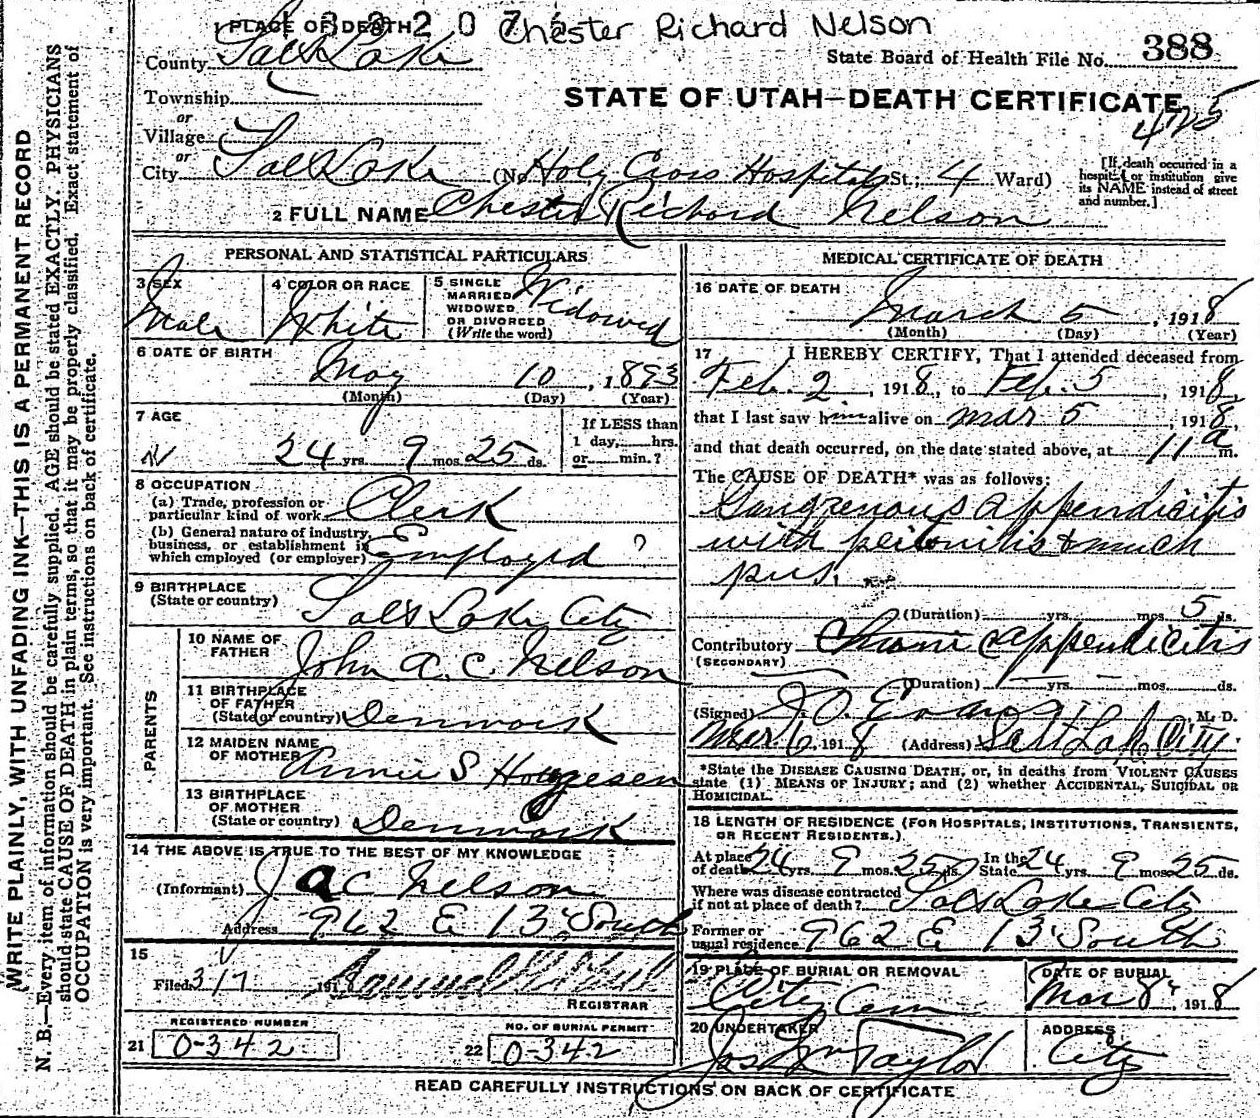 1 PLACE OF DEATH 2 0 7 Chester Richard Nelson
County Salt Lake State Board of Health File No. 388
Township
or
STATE OF UTAH—DEATH CERTIFICATE
Village
or
City Salt Lake (No. Holy Cross Hospital St.; 4 Ward)
[If death occurred in a
hospital or institution give
its NAME instead of street
and number.]
2 FULL NAME Chester Richard Nelson
WRITE PLAINLY, WITH UNFADING INK—THIS IS A PERMANENT RECORD
N. B.—Every item of information should be carefully supplied. AGE should be stated EXACTLY. PHYSICIANS
should state CAUSE OF DEATH in plain terms, so that it may be properly classified. Exact statement of
OCCUPATION is very important. See instructions on back of certificate.
PERSONAL AND STATISTICAL PARTICULARS
3 SEX
Male
4 COLOR OR RACE
White
5 SINGLE
MARRIED
WIDOWED
OR DIVORCED
(Write the word)
Widowed
6 DATE OF BIRTH
May 10, 1893
(Month) (Day) (Year)
7 AGE
24 yrs. 9 mos. 25 ds.
If LESS than
1 day, hrs.
or min.?
8 OCCUPATION
(a) Trade, profession or
particular kind of work Clerk
(b) General nature of industry,
business, or establishment in
which employed (or employer) Employed ?
9 BIRTHPLACE
(State or country)
Salt Lake City
PARENTS
10 NAME OF
FATHER
John A. C. Nelson
11 BIRTHPLACE
OF FATHER
(State or country) Denmark
12 MAIDEN NAME
OF MOTHER
Annie S
13 BIRTHPLACE
OF MOTHER
(State or country) Denmark
14 THE ABOVE IS TRUE TO THE BEST OF MY KNOWLEDGE
(Informant) J A C Nelson
Address 962 E 13 South
15
Filed 3/7 1918
REGISTRAR
REGISTERED NUMBER
21 0-342
NO. OF BURIAL PERMIT
22 0-342
MEDICAL CERTIFICATE OF DEATH
16 DATE OF DEATH
March 5, 1918
(Month) (Day) (Year)
17 I HEREBY CERTIFY, That I attended deceased from
Feb. 2, 1918, to Feb. 5, 1918,
that I last saw him alive on Mar 5, 1918,
and that death occurred, on the date stated above, at 11 a m.
The CAUSE OF DEATH* was as follows:
Gangrenous appendicitis
with peritonitis & much
pus.
(Duration) yrs. mos. 5 ds.
Contributory Chronic appendicitis
(SECONDARY)
(Duration) yrs. mos. ds.
(Signed) J. O. Evans, M. D.
Mar 6, 1918 (Address) Salt Lake City
*State the DISEASE CAUSING DEATH; or, in deaths from VIOLENT CAUSES
state (1) MEANS OF INJURY; and (2) whether ACCIDENTAL, SUICIDAL OR
HOMICIDAL.
18 LENGTH OF RESIDENCE (FOR HOSPITALS, INSTITUTIONS, TRANSIENTS,
OR RECENT RESIDENTS.)
At place
of death 24 yrs. 9 mos. 25 ds. In the State 24 yrs. 9 mos. 25 ds.
Where was disease contracted
if not at place of death? Salt Lake City
Former or
usual residence 962 E 13 South
19 PLACE OF BURIAL OR REMOVAL
City Cem
DATE OF BURIAL
Mar 8, 1918
20 UNDERTAKER
Jos Wm Taylor
ADDRESS
City
READ CAREFULLY INSTRUCTIONS ON BACK OF CERTIFICATE